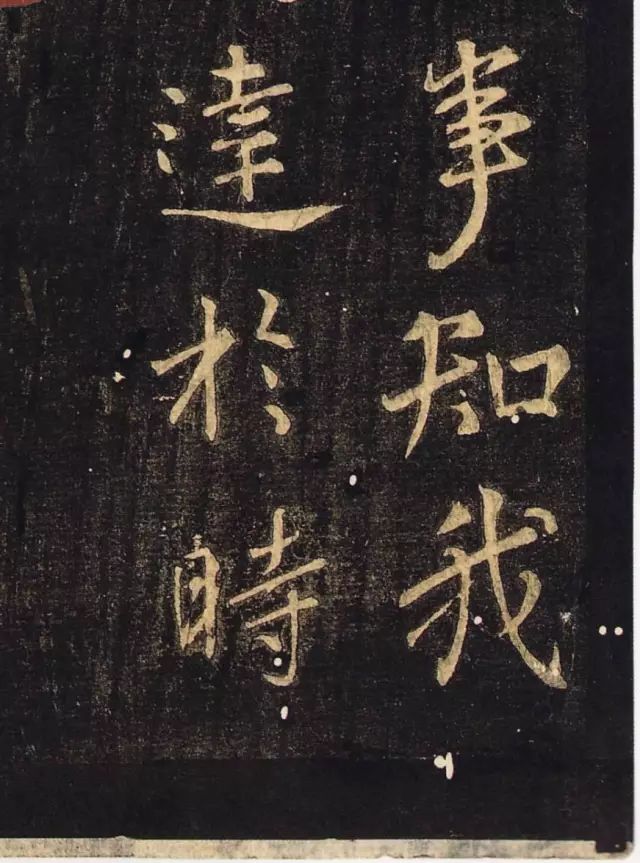 事知我
達於時